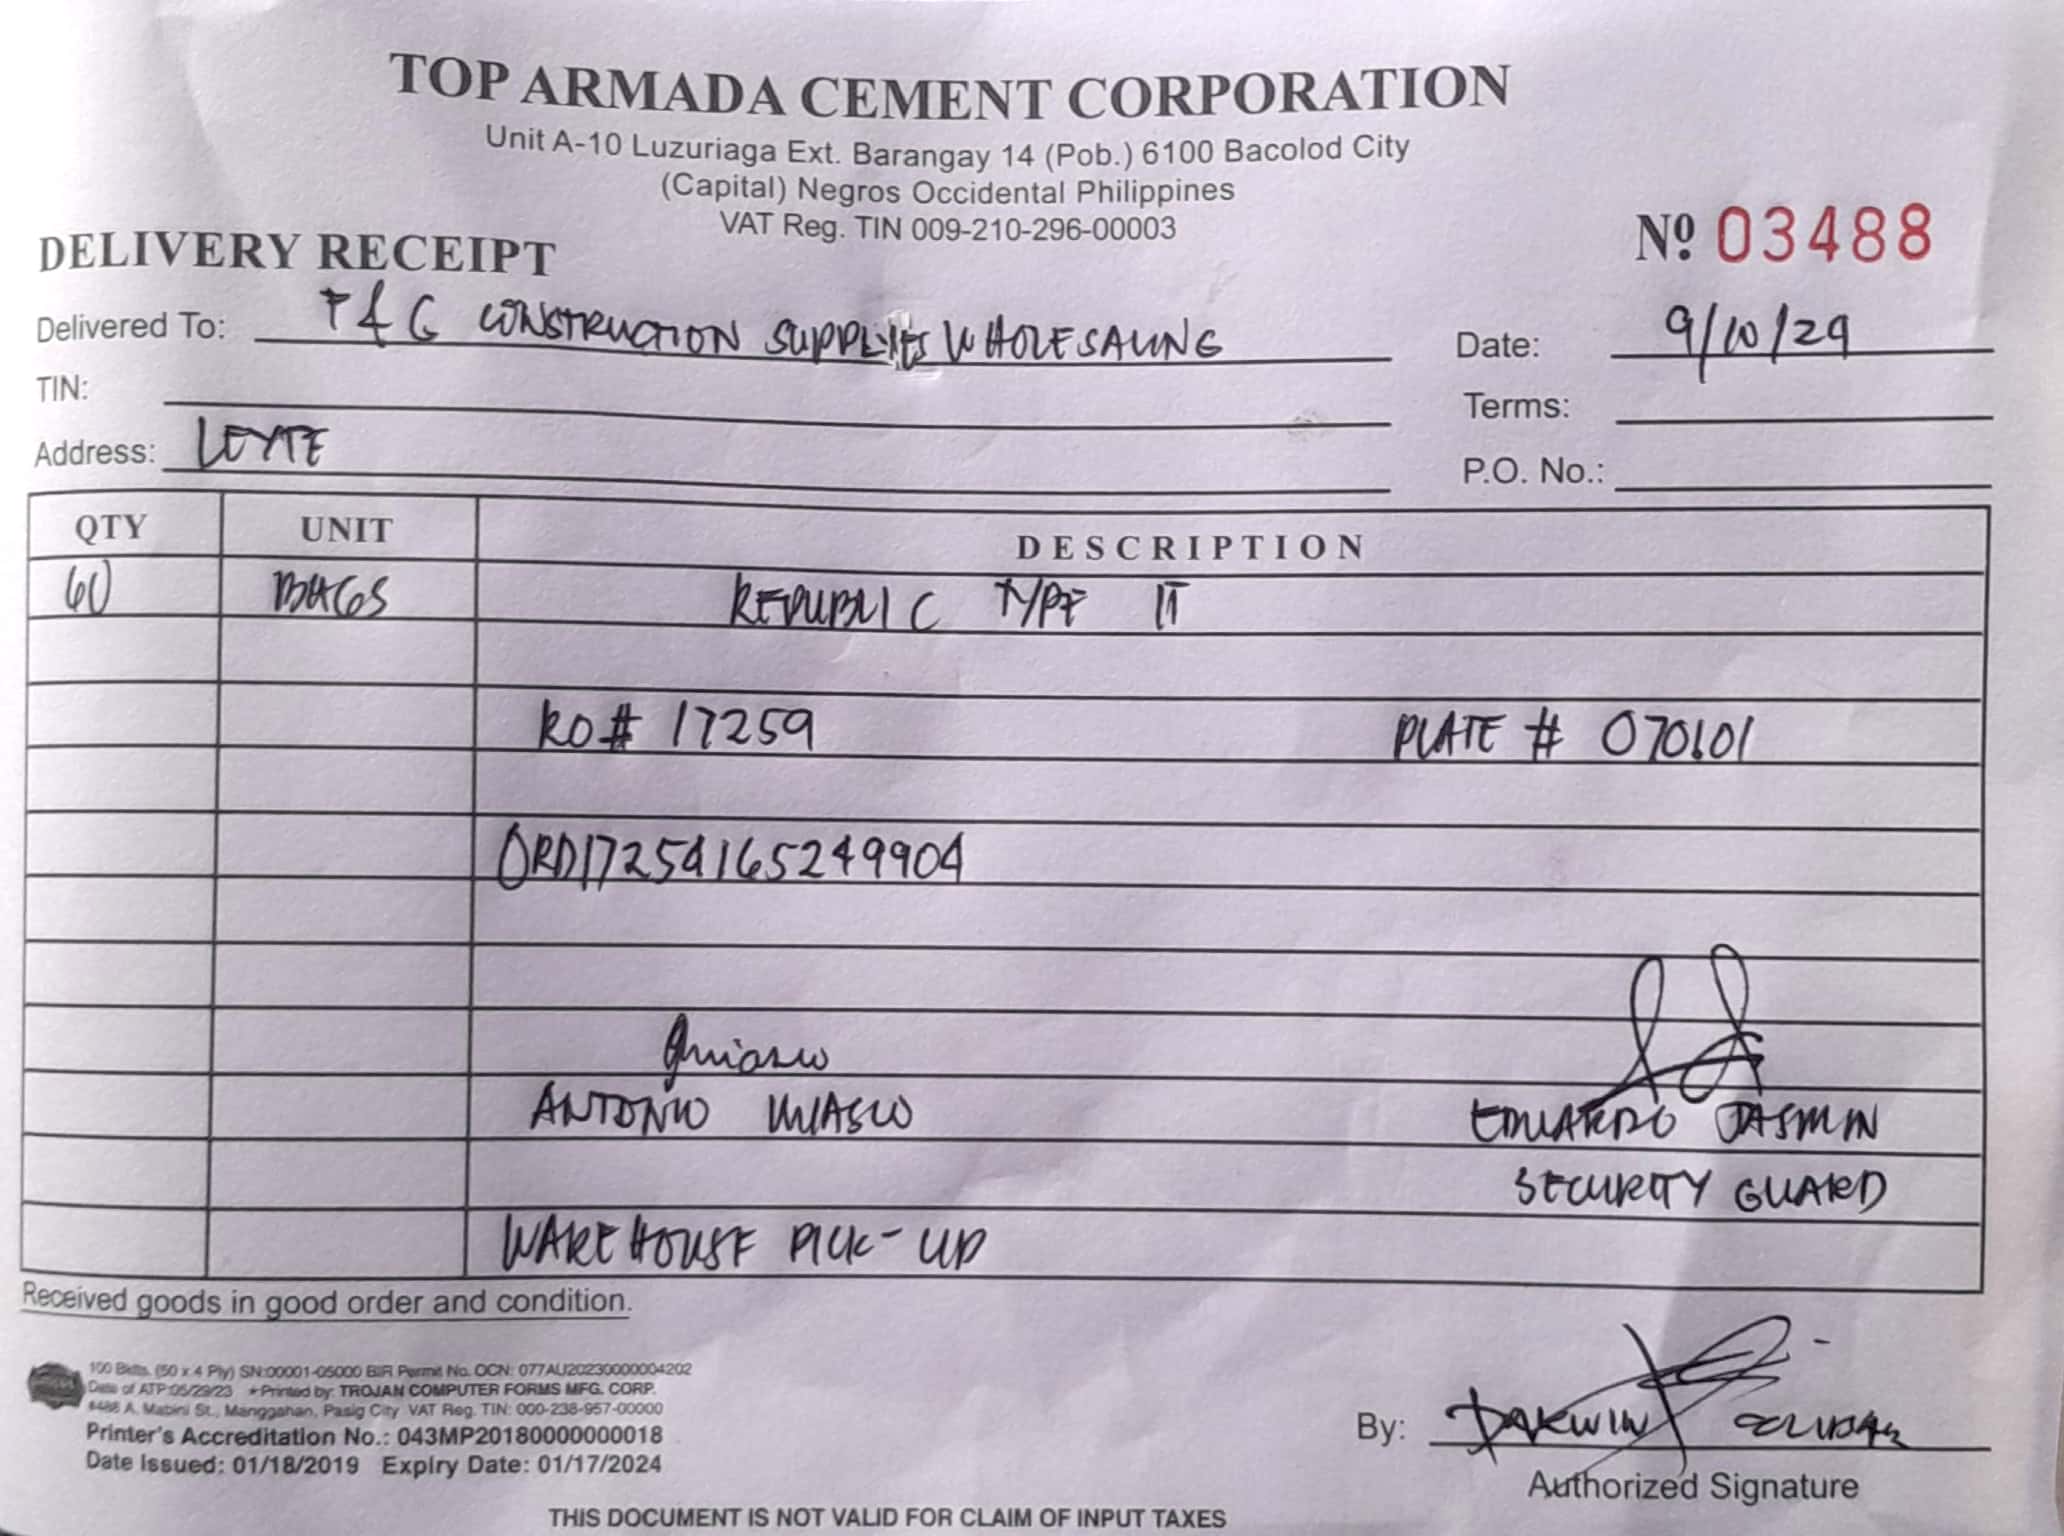 TOP ARMADA CEMENT CORPORATION
Unit A-10 Luzuriaga Ext. Barangay 14 (Pob.) 6100 Bacolod City
(Capital) Negros Occidental Philippines
VAT Reg. TIN 009-210-296-00003
DELIVERY RECEIPT
Nº 03488
Delivered To: T & G CONSTRUCTION SUPPLIES WHOLESALING
Date: 9/10/24
TIN:
Terms:
Address: LEYTE
P.O. No.:
QTY UNIT DESCRIPTION
60 BAGS REPUBLIC TYPE 1T
RO# 17259 PLATE # 070101
ORD17254165249904
ANTONIO
EDUARDO JASMIN
SECURITY GUARD
WAREHOUSE PICK-UP
Received goods in good order and condition.
100 Bklts. (50 x 4 Ply) SN:00001-05000 BIR Permit No. OCN: 077AU20230000004202
Date of ATP:05/29/23 *Printed by: TROJAN COMPUTER FORMS MFG. CORP.
#488 A. Mabini St., Manggahan, Pasig City VAT Reg. TIN: 000-238-957-00000
Printer's Accreditation No.: 043MP20180000000018
Date Issued: 01/18/2019 Expiry Date: 01/17/2024
By: DARWIN
Authorized Signature
THIS DOCUMENT IS NOT VALID FOR CLAIM OF INPUT TAXES